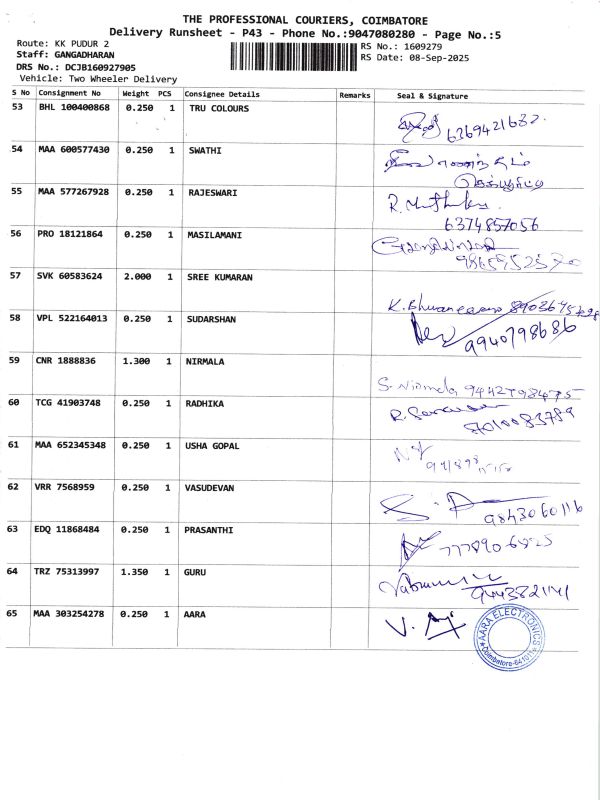 THE PROFESSIONAL COURIERS, COIMBATORE
Delivery Runsheet - P43 - Phone No.:9047080280 - Page No.:5
Route: KK PUDUR 2
Staff: GANGADHARAN
DRS No.: DCJB160927905
Vehicle: Two Wheeler Delivery
RS No.: 1609279
RS Date: 08-Sep-2025
S No Consignment No Weight PCS Consignee Details Remarks Seal & Signature
53 BHL 100400868 0.250 1 TRU COLOURS
6369421632
54 MAA 600577430 0.250 1 SWATHI
55 MAA 577267928 0.250 1 RAJESWARI
R.
6374857056
56 PRO 18121864 0.250 1 MASILAMANI
57 SVK 60583624 2.000 1 SREE KUMARAN
K.
58 VPL 522164013 0.250 1 SUDARSHAN
9940798686
59 CNR 1888836 1.300 1 NIRMALA
S. Nirmala 9442798475
60 TCG 41903748 0.250 1 RADHIKA
R.
61 MAA 652345348 0.250 1 USHA GOPAL
62 VRR 7568959 0.250 1 VASUDEVAN
9843060116
63 EDQ 11868484 0.250 1 PRASANTHI
64 TRZ 75313997 1.350 1 GURU
65 MAA 303254278 0.250 1 AARA
V.
AARA ELECTRONICS